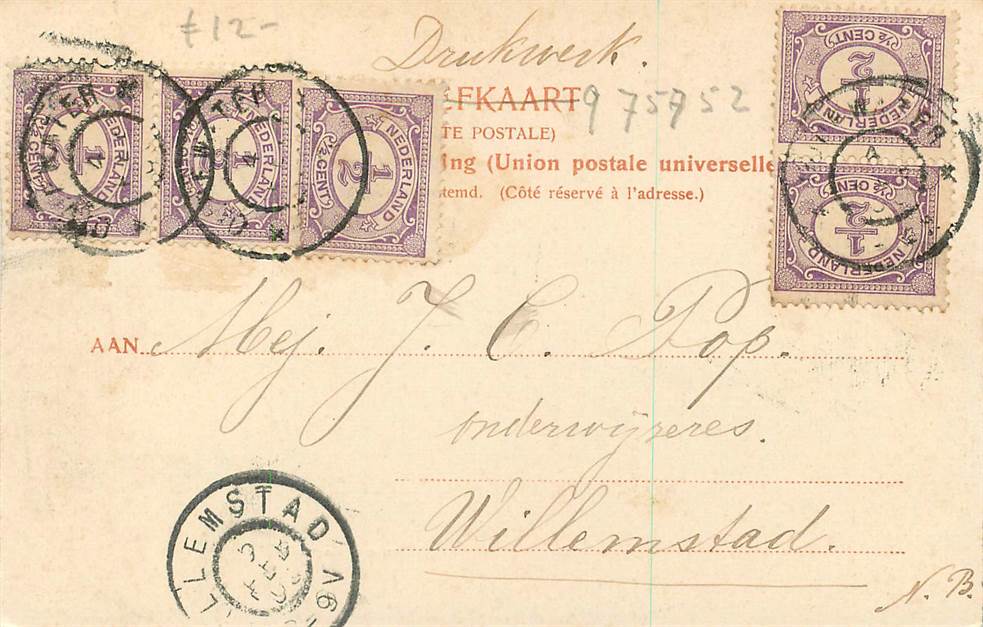 £12-
Drukwerk.
EFKAART
975952
TE POSTALE)
ing (Union postale universelle
temd. (Côté réservé à l'adresse.)
NEDERLAND
1/2
½ CENT
NEDERLAND
1/2
½ CENT
NEDERLAND
1/2
½ CENT
½ CENT
1/2
NEDERLAND
½ CENT
1/2
NEDERLAND
AAN Mej. J. C. Pop.
onderwijzeres.
Willemstad.
N. B.
LLEMSTAD